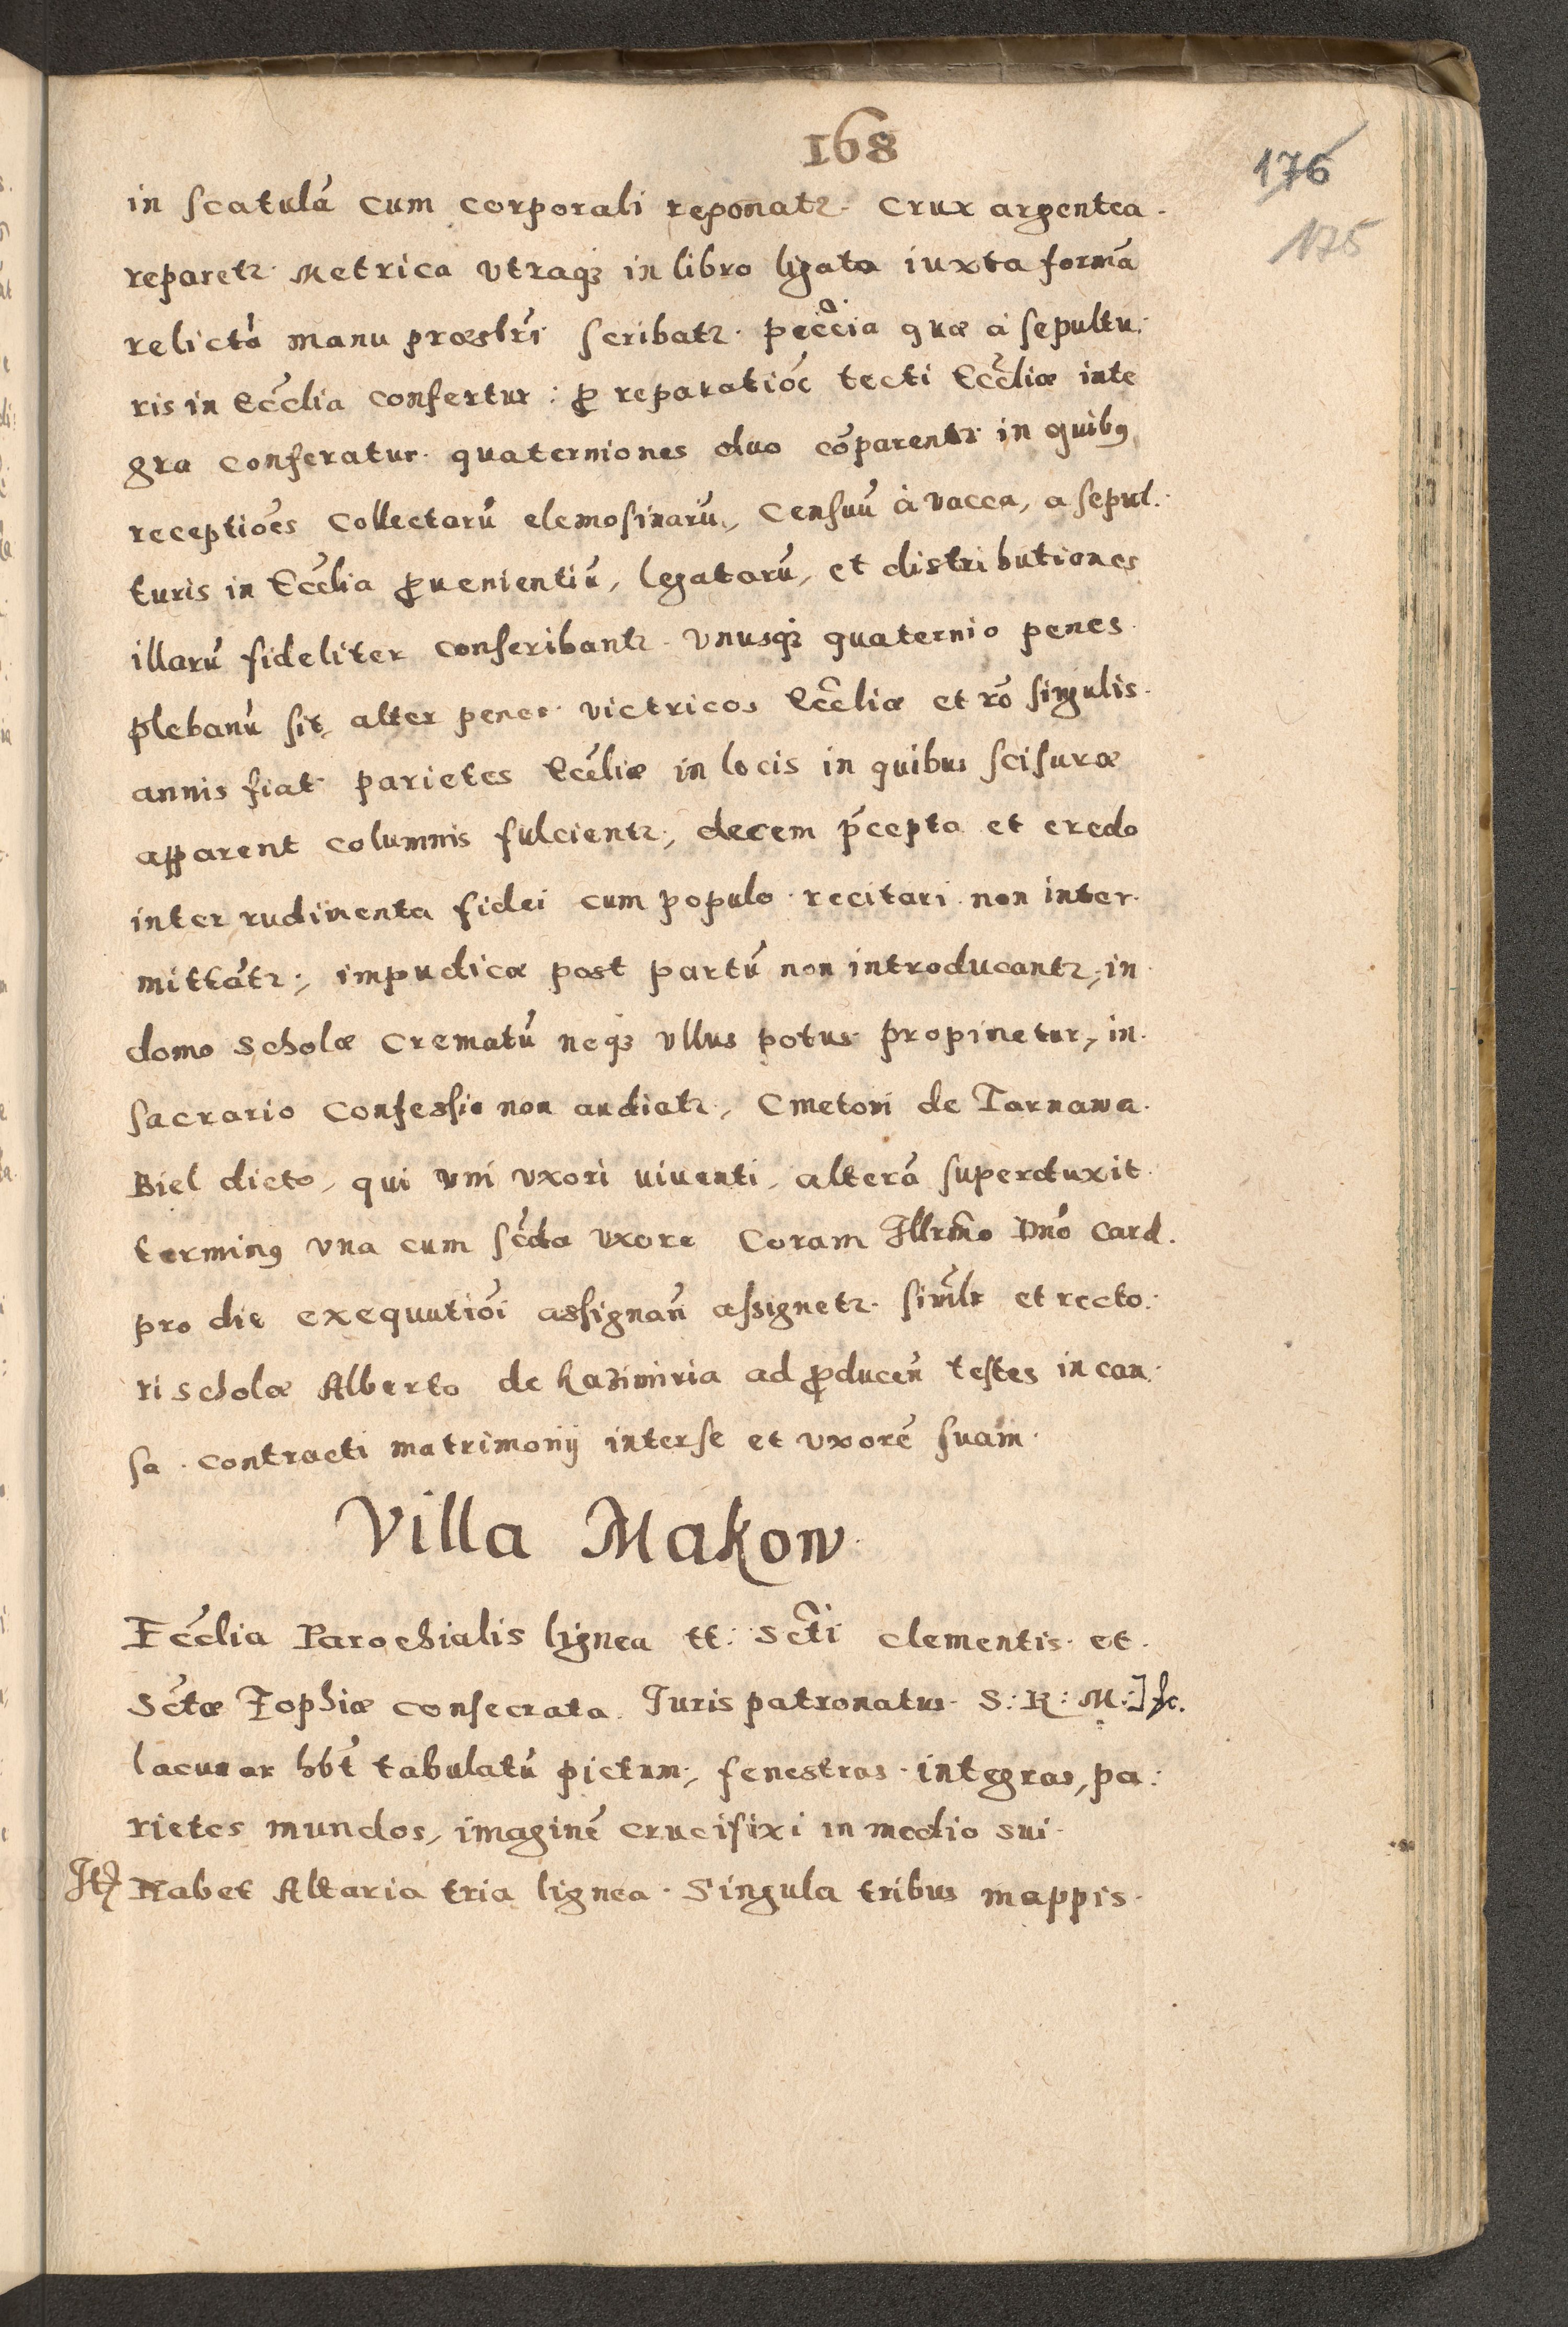 168
176
175
in scatulā cum corporali reponatr. Crux argentea.
reparetr. Metrica vtraqȝ in libro ligata iuxta formā
relictā manu præsbrī scribatr. peccia quæ à sepultu:
ris in Eccīa confertur: ꝓ reparatiōe tecti Ecclīæ inte
gra conferatur. quaterniones duo cōparentr in quibꝯ
receptiōes Collectarū elemosinarū, Censuū à vacca, a sepul:
turis in Ecclīa ꝓuenientiū, legatorū, et distributiones
illarū fideliter conscribantr. vnusqȝ quaternio penes.
plebanū sit, alter penes victricos Ecclīæ et rō singulis.
annis fiat parietes Ecclīæ in locis in quibus scisuræ
apparent columnis fulcientr, decem p̄cepta et credo
inter rudimenta fidei cum populo recitari non inter.
mittātr, impudicæ post partū non introducantr, in
domo scholæ Crematū neqȝ vllus potus propinetur, in.
sacrario Confessio non audiatr, Cmetoni de Tarnawa.
Biel dicto, qui vni vxori uiuenti, alterā superduxit.
terminꝯ vna cum scđa vxore Coram Illrmo Dnō Card.
pro die exequutiōi assignan̄ assignetr. simlr et recto:
ri scholæ Alberto de Kazimiria ad ꝓducen̄ testes in cau:
sa contracti matrimonij inter se et vxorē suam.
Villa Makow.
Ecclīa Parochialis lignea tt: Scti clementis. et.
Sctæ Zophiæ consecrata. Juris patronatus. S: R: M:] &c.
lacunar hbt̄ tabulatū pictum, fenestras integras, pa:
rietes mundos, imaginē crucifixi in medio sui.
It] Habet Altaria tria lignea. Singula tribus mappis.